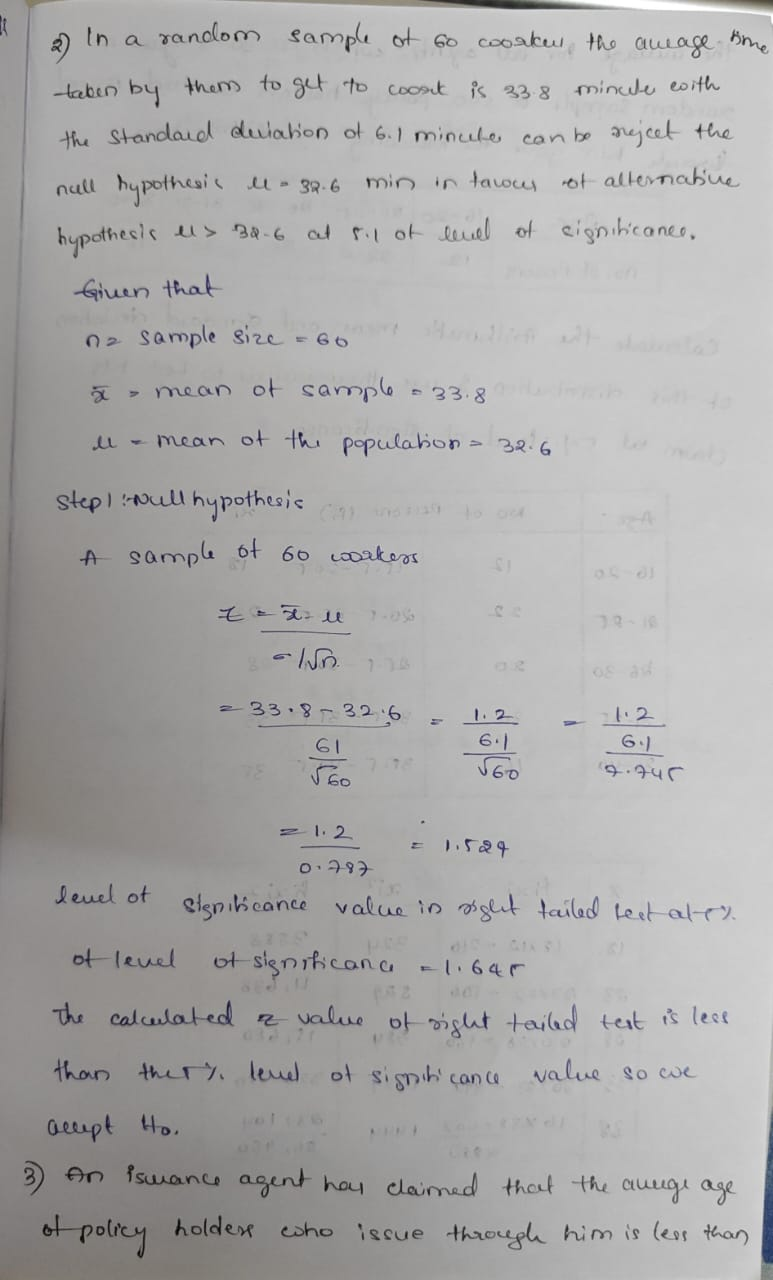 2) In a random sample of 60 workers, the average time
taken by them to get to work is 33.8 minute with
the standard deviation of 6.1 minutes can be reject the
null hypothesis μ = 32.6 min in favour of alternative
hypothesis μ > 32.6 at 5.1 of level of significance.
Given that
n = sample size = 60
x̄ = mean of sample = 33.8
μ = mean of the population = 32.6
Step 1 :- Null hypothesis
A sample of 60 workers
z = x̄ - μ / σ/√n
= 33.8 - 32.6 / 61/√60 = 1.2 / 6.1/√60 = 1.2 / 6.1/7.745
= 1.2 / 0.787 = 1.524
level of significance value in right tailed test at 5%
of level of significance = 1.645
The calculated z value of right tailed test is less
than the 5% level of significance value so we
accept H0.
3) An isurance agent has claimed that the average age
of policy holders who issue through him is less than